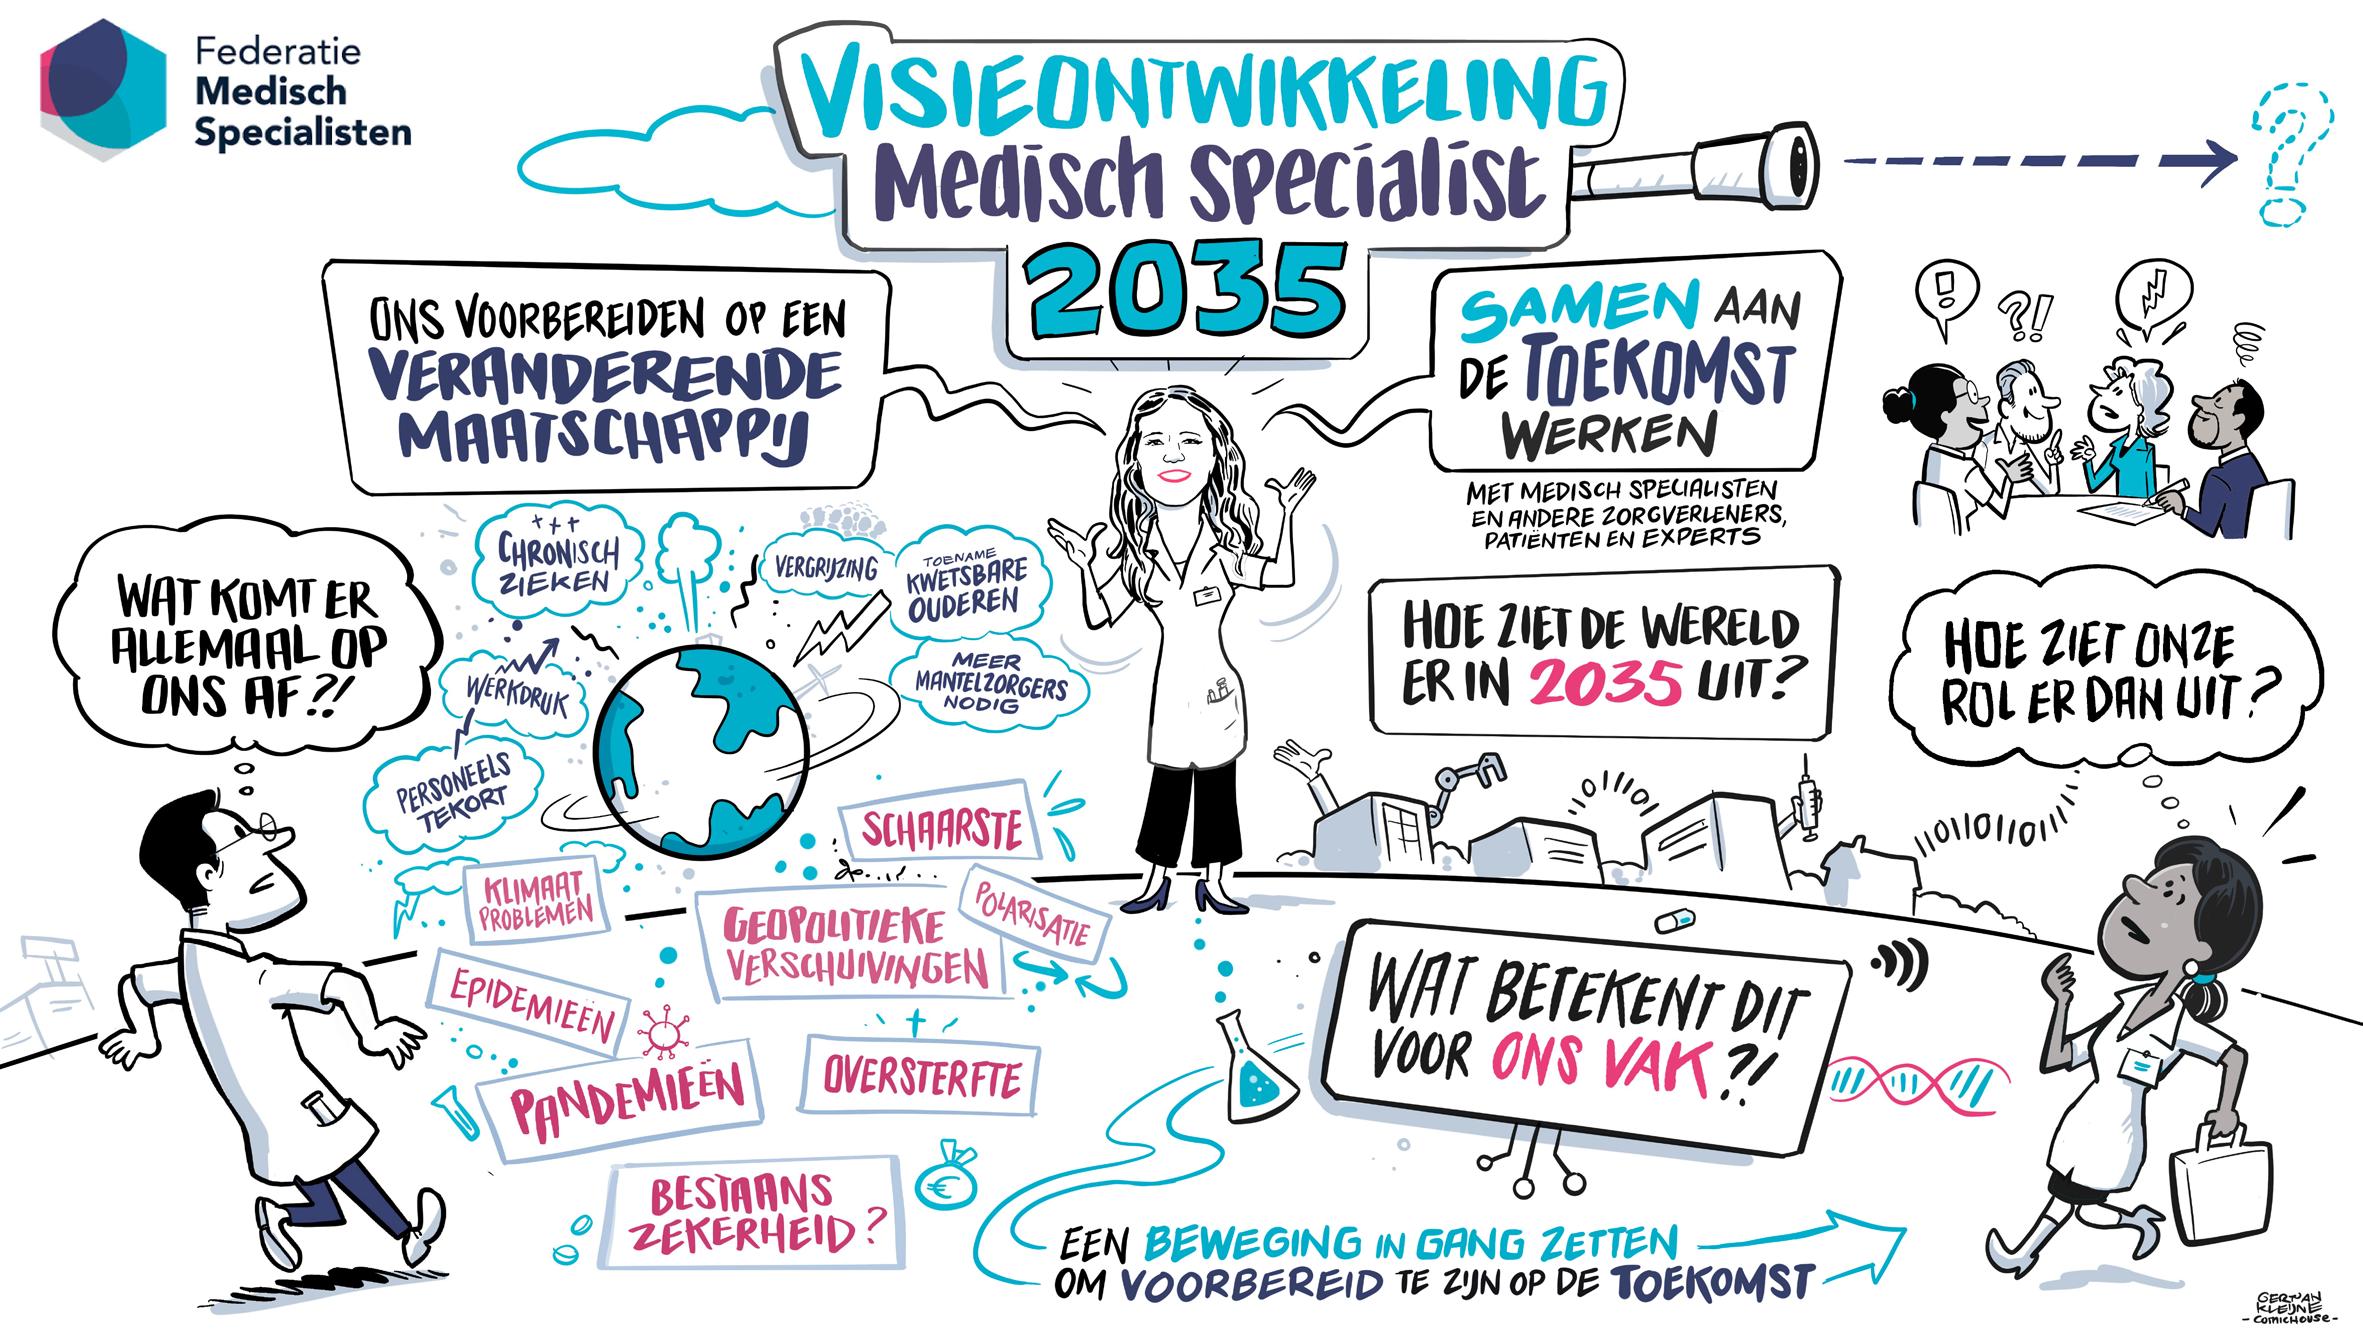 Federatie
Medisch
Specialisten
VISIEONTWIKKELING
MEDISCH SPECIALIST
2035
?
ONS VOORBEREIDEN OP EEN
VERANDERENDE
MAATSCHAPPIJ
SAMEN AAN
DE TOEKOMST
WERKEN
MET MEDISCH SPECIALISTEN
EN ANDERE ZORGVERLENERS,
PATIËNTEN EN EXPERTS
!
?!
WAT KOMT ER
ALLEMAAL OP
ONS AF?!
+++
CHRONISCH
ZIEKEN
VERGRIJZING
TOENAME
KWETSBARE
OUDEREN
MEER
MANTELZORGERS
NODIG
WERKDRUK
PERSONEELS
TEKORT
HOE ZIET DE WERELD
ER IN 2035 UIT?
HOE ZIET ONZE
ROL ER DAN UIT?
SCHAARSTE
KLIMAAT
PROBLEMEN
GEOPOLITIEKE
VERSCHUIVINGEN
POLARISATIE
EPIDEMIEËN
PANDEMIEËN
OVERSTERFTE
BESTAANS
ZEKERHEID?
€
WAT BETEKENT DIT
VOOR ONS VAK?!
EEN BEWEGING IN GANG ZETTEN
OM VOORBEREID TE ZIJN OP DE TOEKOMST
GERTJAN
KLEIJNE
-COMICHOUSE-